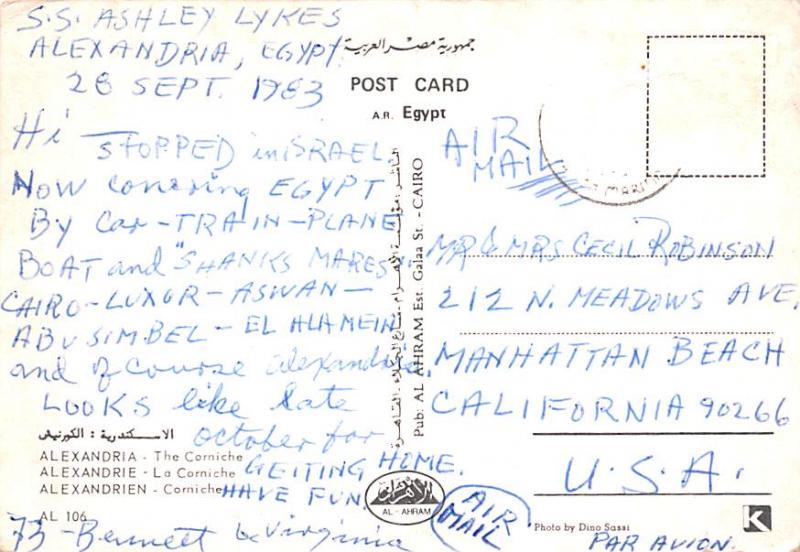 S.S. ASHLEY LYKES
ALEXANDRIA, EGYPT
28 SEPT. 1983
Hi STOPPED in ISRAEL.
Now covering EGYPT
By Car-TRAIN-PLANE
BOAT and "SHANKS MARES".
CAIRO-LUXOR-ASWAN-
ABU SIMBEL-EL ALAMEIN
and of course Alexandria.
LOOKS like late
October for
GETTING HOME.
HAVE FUN.
73-Bennett & Virginia
الاسكندرية : الكورنيش
ALEXANDRIA - The Corniche
ALEXANDRIE - La Corniche
ALEXANDRIEN - Corniche
AL 106
جمهورية مصر العربية
POST CARD
A.R. Egypt
الناشر : مؤسسة الاهرام شارع الجلاء - القاهرة
Pub: AL AHRAM Est. Galaa St. - CAIRO
AIR
MAIL
MR & MRS CECIL ROBINSON
212 N. MEADOWS AVE,
MANHATTAN BEACH
CALIFORNIA 90266
U.S.A.
الأهرام
AL - AHRAM
AIR
MAIL
Photo by Dino Sassi
K
PAR AVION.